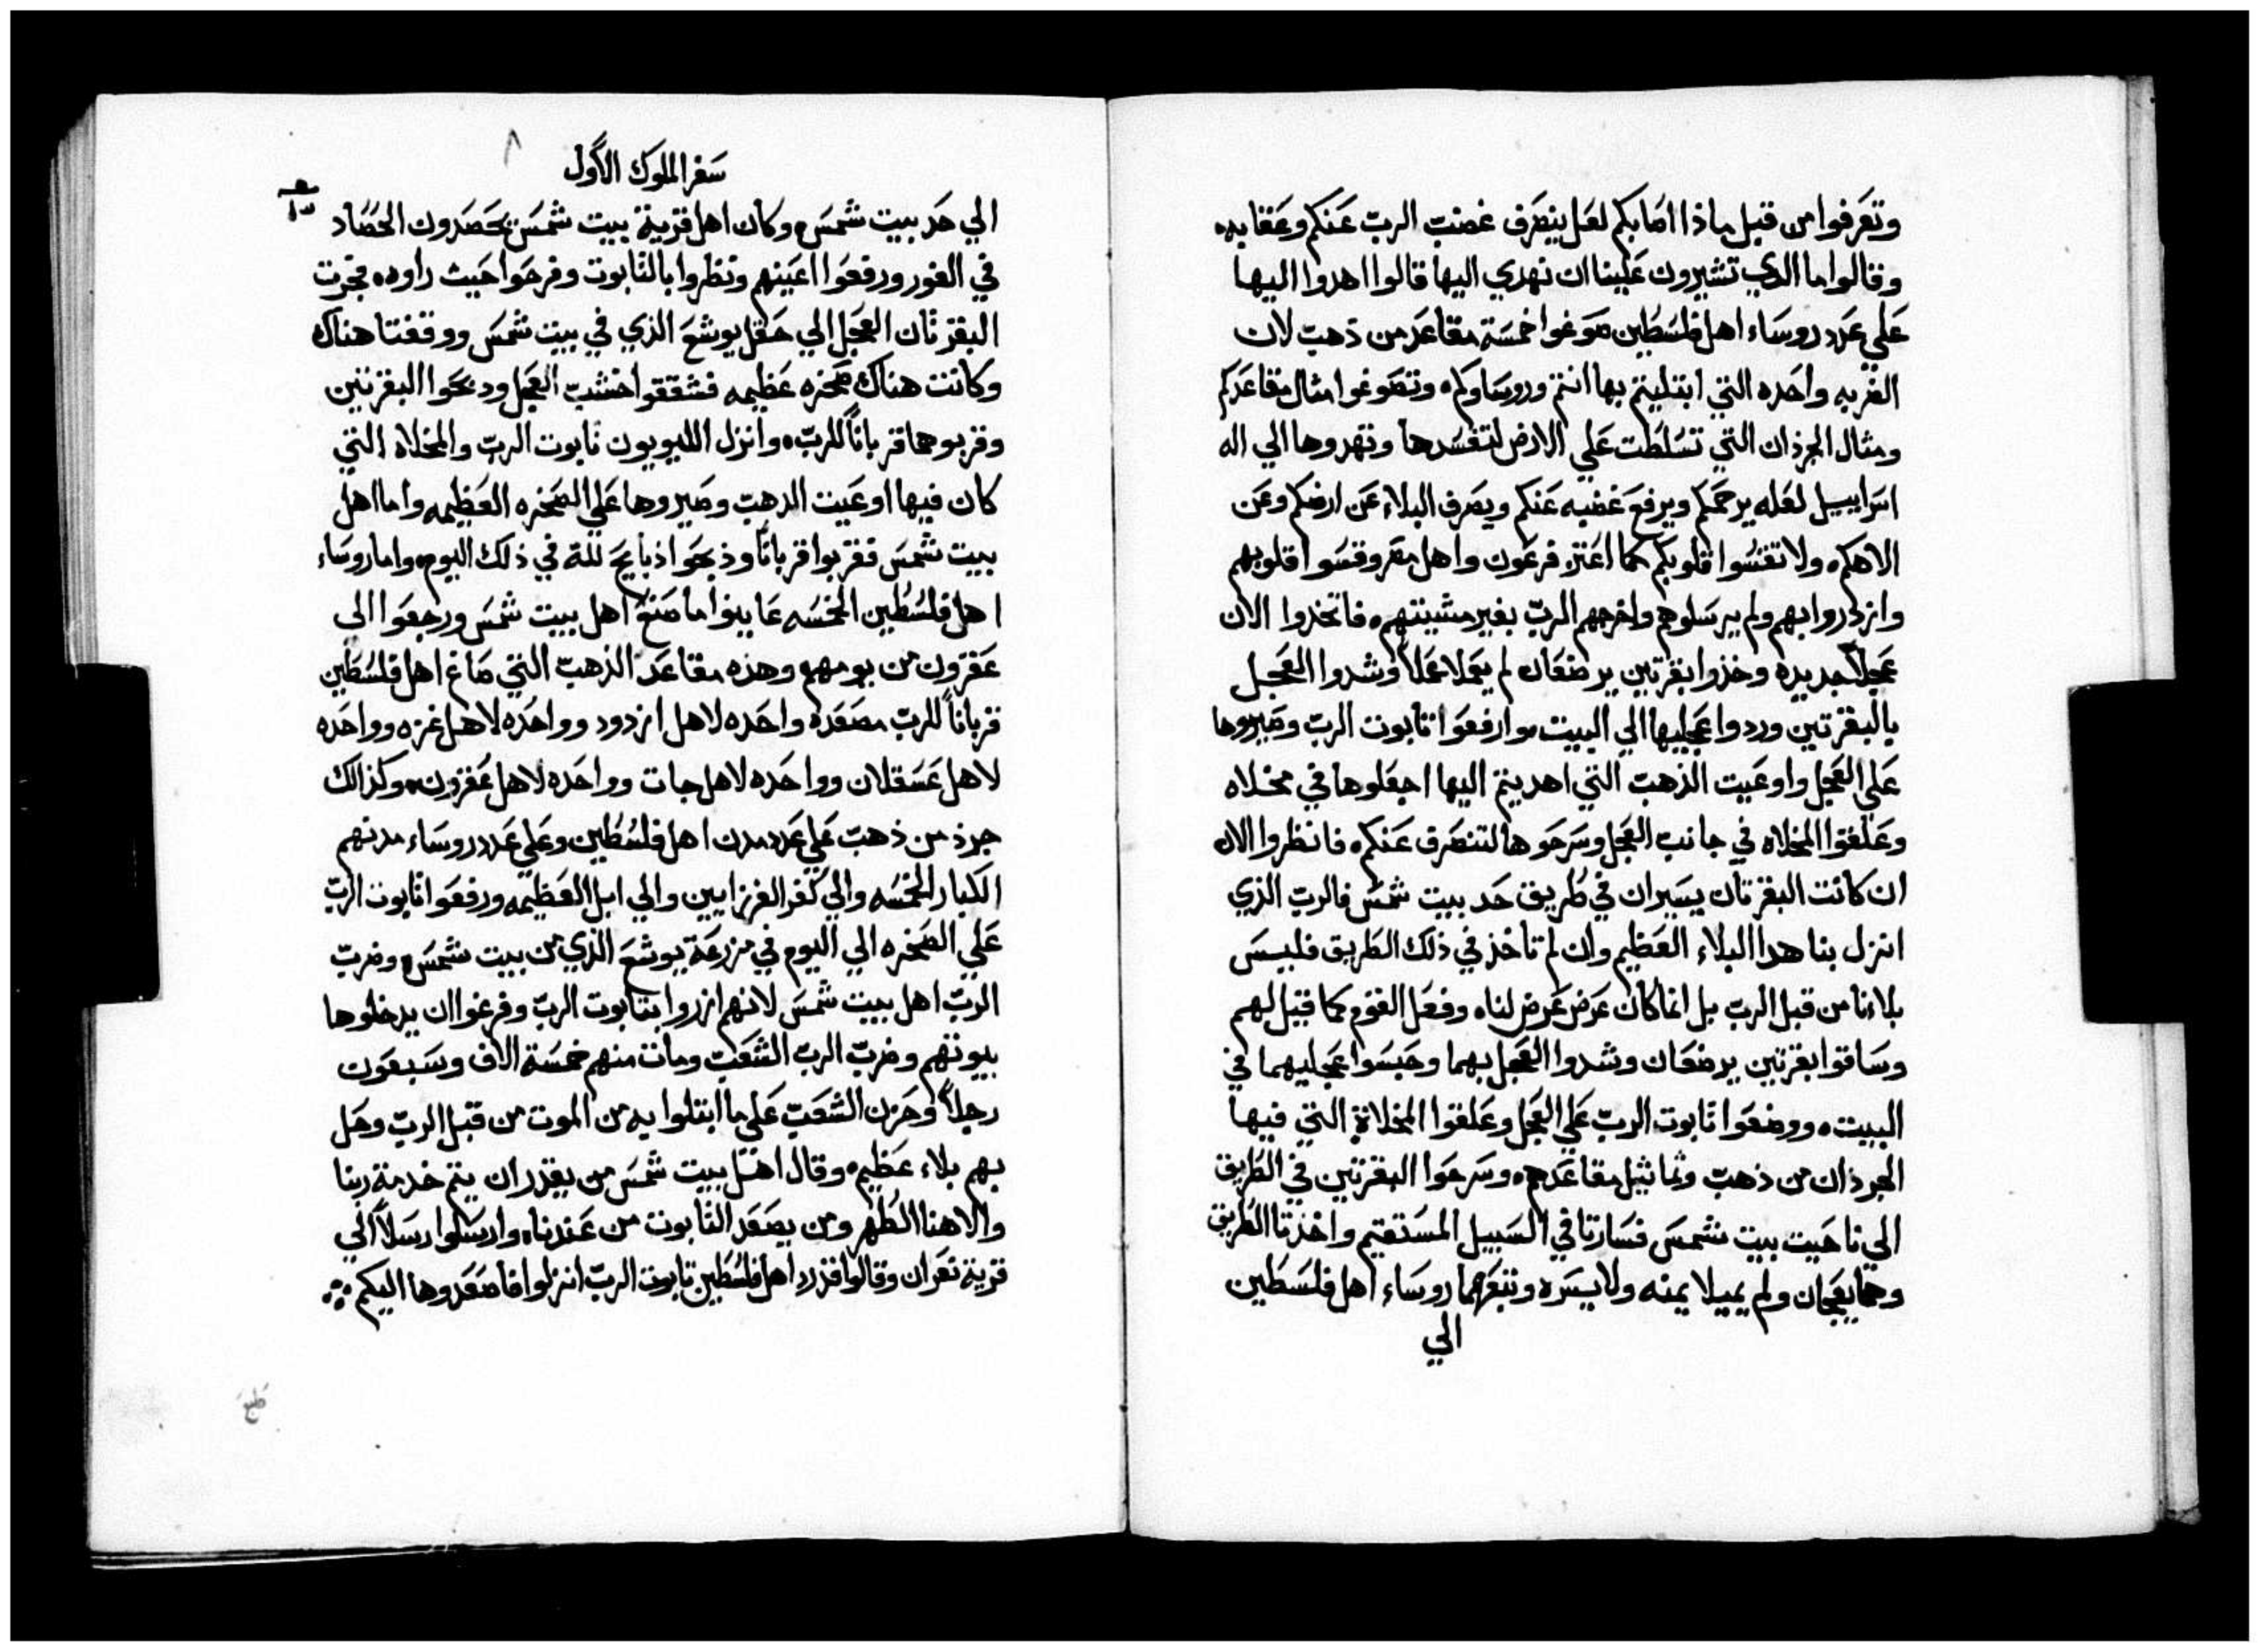 وتعرفوا من قبل ماذا اصابكم لعل ينصرف غضب الرب عنكم وعقابه
وقالوا ما الدي تشيرون علينا ان نهدي اليها قالوا اهدوا اليها
علي عدد روساء اهل فلسطين صوغوا خمسة مقاعد من ذهب لان
الضربه واحده التي ابتليتم بها انتم وروساوكم وتصوغوا مثال مقاعدكم
ومثال الجرذان التي تسلطت علي الارض لتفسدها وتهدوها الي اله
اسراييل لعله يرحمكم ويرفع غضبه عنكم ويصرف البلاء عن ارضكم وعن
الاهكم ولا تقسوا قلوبكم كما اغتر فرعون واهل مصر وقسوا قلوبهم
وازدروا بهم ولم يرسلوهم واخرجهم الرب بغير مشيتهم فاتخدوا الان
عجلاً جديده وخذوا بقرتين يرضعان لم يعملا عملاً وشدوا العجل
بالبقرتين وردوا عجليها الي البيت وارفعوا تابوت الرب وصيروها
علي العجل واوعيت الذهب التي اهديتم اليها اجعلوها في مخلاه
وعلقوا المخلاه في جانب العجل وسرحوها لتنصرف عنكم فانظروا الان
ان كانت البقرتان يسيران في طريق حد بيت شمس فالرب الذي
انزل بنا هدا البلاء العظيم وان لم تاخذ في ذلك الطريق فليس
بلاءنا من قبل الرب بل انما كان عرض عرض لنا وفعل القوم كما قيل لهم
وساقوا بقرتين يرضعان وشدوا العجل بهما وحبسوا عجليهما في
البيت ووضعوا تابوت الرب علي العجل وعلقوا المخلاة التي فيها
الجرذان من ذهب وتماثيل مقاعدهم وسرحوا البقرتين في الطريق
الي ناحيت بيت شمس فسارتا في السبيل المستقيم واخذتا الطريق
وهما يعجان ولم يميلا يمنه ولا يسره وتبعهما روساء اهل فلسطين
الي
٨
سفر الملوك الاول
الي حد بيت شمس وكان اهل قرية بيت شمس يحصدون الحصاد
في الغور ورفعوا اعينهم ونظروا بالتابوت وفرحوا حيث راوه فجرت
البقرتان العجل الي حقل يوشع الذي في بيت شمس ووقفتا هناك
وكانت هناك صخره عظيمه فشققوا خشب العجل ودبحوا البقرتين
وقربوهما قرباناً للرب وانزل الليويون تابوت الرب والمخلاه التي
كان فيها اوعيت الدهب وصيروها علي الصخره العظيمه واما اهل
بيت شمس فقربوا قرباناً وذبحوا ذبايح لله في ذلك اليوم واما روساء
اهل فلسطين الخمسه عاينوا ما صنع اهل بيت شمس ورجعوا الي
عقرون من يومهم وهذه مقاعد الذهب التي صاغ اهل فلسطين
قرباناً للرب مصعده واحده لاهل ازدود وواحده لاهل غزه وواحده
لاهل عسقلان وواحده لاهل جات وواحده لاهل عقرون وكذالك
جرذ من ذهب علي عدد مدن اهل فلسطين وعلي عدد روساء مدنهم
الكبار الخمسه والي كفر الغرزايين والي ابل العظيمه ورفعوا تابوت الرب
علي الصخره الي اليوم في مزرعة يوشع الذي من بيت شمس وضرب
الرب اهل بيت شمس لانهم ازروا بتابوت الرب وفرغوا ان يدخلوها
بيوتهم وضرب الرب الشعب ومات منهم خمسة الاف وسبعون
رجلاً وحزن الشعب علي ما ابتلوا به من الموت من قبل الرب وحل
بهم بلاء عظيم وقال اهل بيت شمس من يقدر ان يتم خدمة ربنا
والاهنا الطهر ومن يصعد التابوت من عندنا وارسلوا رسلاً الي
قرية نعران وقالوا قد رد اهل فلسطين تابوت الرب انزلوا فاصعدوها اليكم